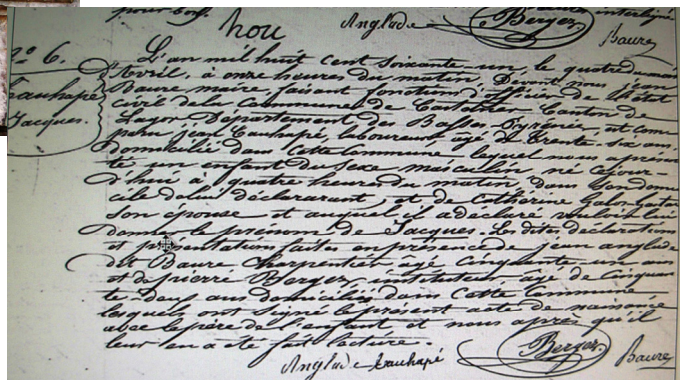 hou
Anglade Berger Baure
n° 6.
Cauhapé
Jacques.
L'an mil huit cent soixante un, le quatre du mois
d'Avril, à onze heures du matin, Devant nous jean
Baure maire, faisant fonctions d'officier de l'état
civil de la Commune de Canton de
Lagor Département des Basses Pyrénées, est com
paru jean Cauhapé, laboureur, âgé de trente-six ans,
domicilié dans cette Commune lequel nous a présen
té un enfant du sexe masculin, né cejour-
d'hui à quatre heures du matin, dans son domi
cile de lui déclarant, et de Catherine
son épouse et auquel il a déclaré vouloir lui
donner le prénom de Jacques. Les dites déclarations
et présentation faites en présence de jean anglade
dit Baure Charpentier âgé Cinquante un ans
et de pierre Berger, instituteur âgé de Cinquan
te-deux ans domiciliés dans cette Commune
lesquels ont signé le présent acte de naissance
avec le père de l'enfant, et nous après qu'il
leur en a été fait lecture.
Anglade Cauhapé Berger Baure